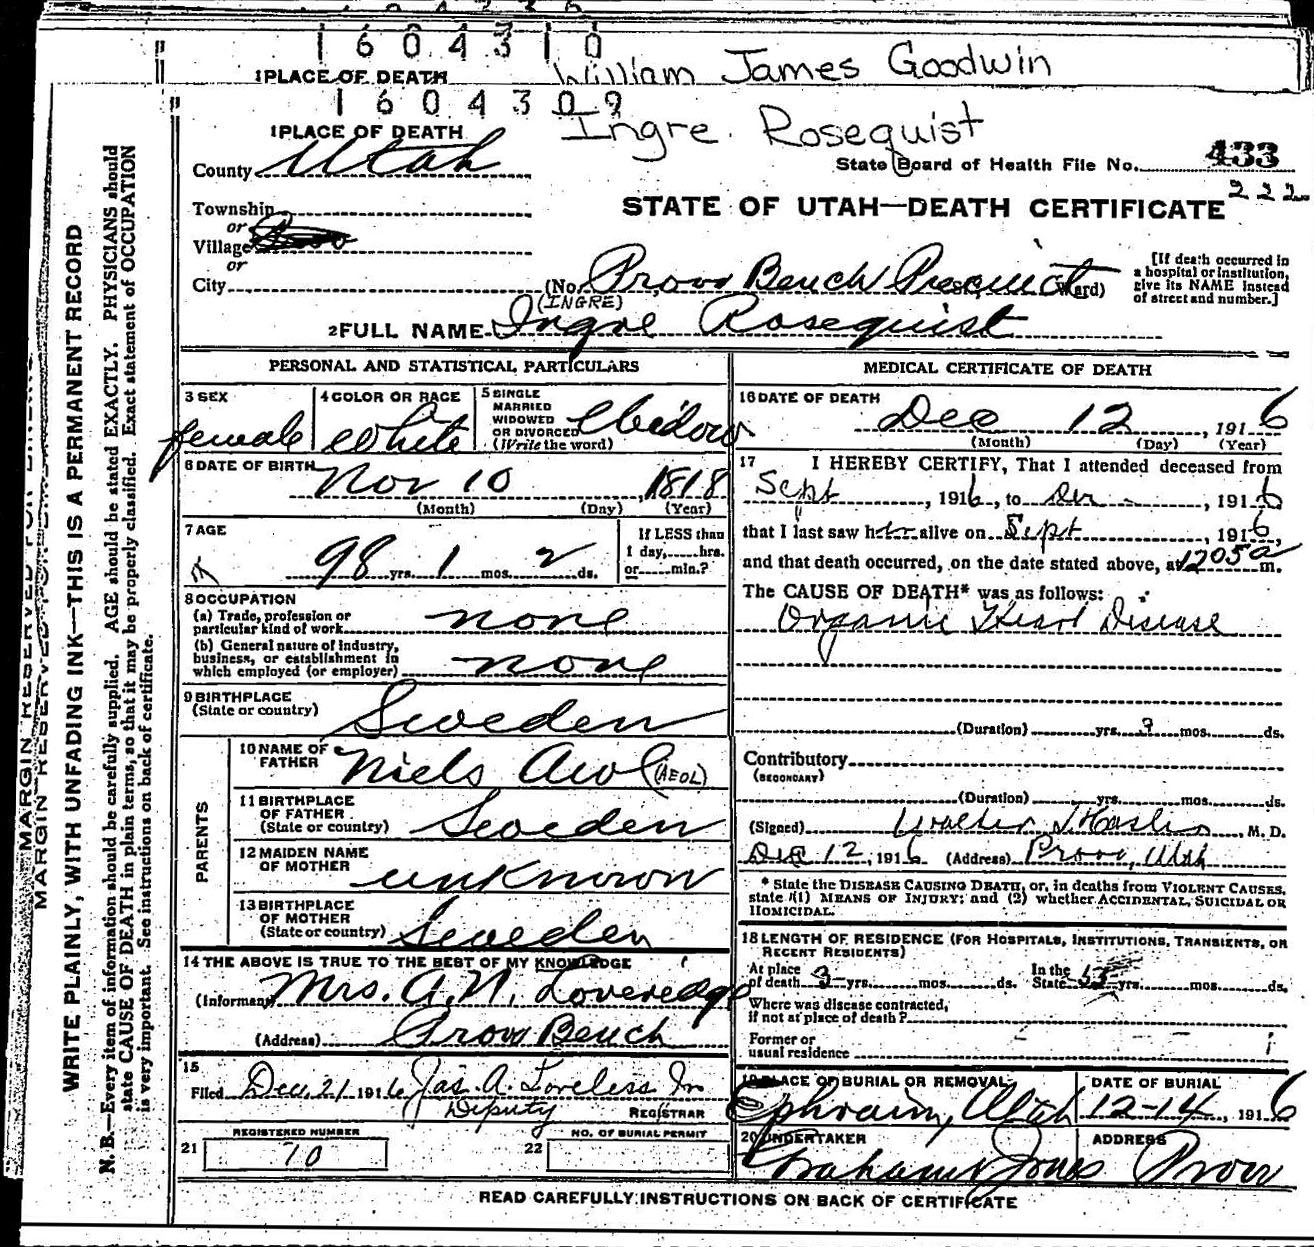 1 6 0 4 3 1 0
1 PLACE OF DEATH William James Goodwin
1 6 0 4 3 0 9
1 PLACE OF DEATH Ingre. Rosequist
County Utah
State Board of Health File No. 433
222
Township
or
Village
or
City
STATE OF UTAH—DEATH CERTIFICATE
(No. Provo Bench Precinct Ward)
[If death occurred in
a hospital or institution,
give its NAME instead
of street and number.]
(INGRE)
2 FULL NAME Ingre Rosequist
PERSONAL AND STATISTICAL PARTICULARS
3 SEX
female
4 COLOR OR RACE
White
5 SINGLE
MARRIED
WIDOWED
OR DIVORCED
(Write the word)
Widow
6 DATE OF BIRTH
Nov 10, 1818
(Month) (Day) (Year)
7 AGE
98 yrs. 1 mos. 2 ds.
If LESS than
1 day, hrs.
or min.?
8 OCCUPATION
(a) Trade, profession or
particular kind of work none
(b) General nature of industry,
business, or establishment in
which employed (or employer) none
9 BIRTHPLACE
(State or country) Sweden
PARENTS
10 NAME OF
FATHER Niels Awl (AEOL)
11 BIRTHPLACE
OF FATHER
(State or country) Sweden
12 MAIDEN NAME
OF MOTHER unknown
13 BIRTHPLACE
OF MOTHER
(State or country) Sweden
14 THE ABOVE IS TRUE TO THE BEST OF MY KNOWLEDGE
(Informant) Mrs. A. N. Loveredge
(Address) Provo Bench
15
Filed Dec. 21 1916 Jas A. Loveless
Deputy REGISTRAR
REGISTERED NUMBER
21 70
NO. OF BURIAL PERMIT
22
MEDICAL CERTIFICATE OF DEATH
16 DATE OF DEATH
Dec 12, 1916
(Month) (Day) (Year)
17 I HEREBY CERTIFY, That I attended deceased from
Sept, 1916, to Dec, 1916
that I last saw her alive on Sept, 1916,
and that death occurred, on the date stated above, at 1205 a m.
The CAUSE OF DEATH* was as follows:
Organic Heart Disease
(Duration) yrs. ? mos. ds.
Contributory
(SECONDARY)
(Duration) yrs. mos. ds.
(Signed) Walter T Hasler, M. D.
Dec 12, 1916 (Address) Provo, Utah
* State the DISEASE CAUSING DEATH, or, in deaths from VIOLENT CAUSES,
state (1) MEANS OF INJURY; and (2) whether ACCIDENTAL, SUICIDAL OR
HOMICIDAL.
18 LENGTH OF RESIDENCE (FOR HOSPITALS, INSTITUTIONS, TRANSIENTS, OR
RECENT RESIDENTS)
At place
of death 3 yrs. mos. ds.
In the
State 55 yrs. mos. ds.
Where was disease contracted,
if not at place of death?
Former or
usual residence
19 PLACE OF BURIAL OR REMOVAL
Ephraim, Utah
DATE OF BURIAL
12-14, 1916
20 UNDERTAKER
Graham & Jones
ADDRESS
Provo
READ CAREFULLY INSTRUCTIONS ON BACK OF CERTIFICATE
MARGIN RESERVED FOR BINDING
MARGIN RESERVED
WRITE PLAINLY, WITH UNFADING INK—THIS IS A PERMANENT RECORD
N. B.—Every item of information should be carefully supplied. AGE should be stated EXACTLY. PHYSICIANS should
state CAUSE OF DEATH in plain terms, so that it may be properly classified. Exact statement of OCCUPATION
is very important. See instructions on back of certificate.